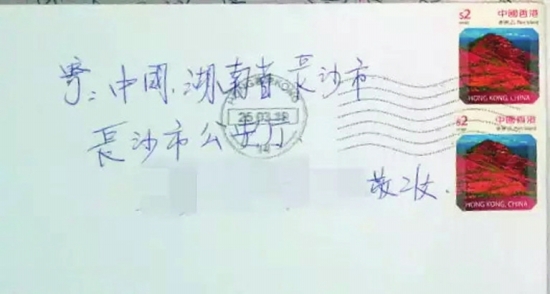 寄:中國.湖南省長沙市
長沙市公安厅
敬收.
$2
中國香港
HONG KONG, CHINA
$2
中國香港
HONG KONG, CHINA
HONG KONG